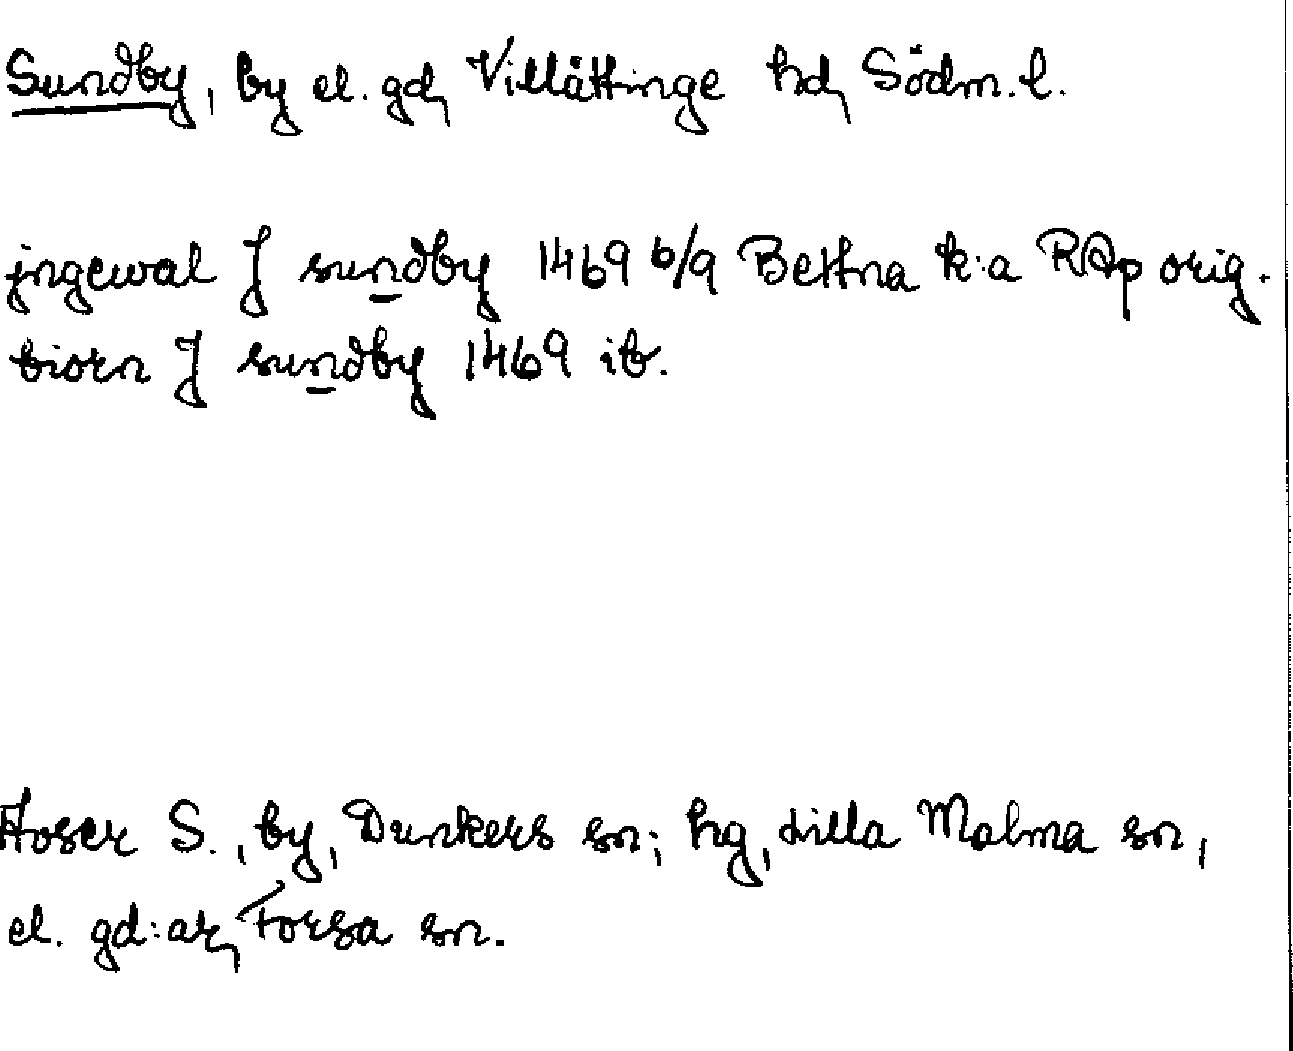 Sundby, by el. gd, Villåttinge hd, Södm. l.
jngewal J sundby 1469 6/9 Bettna k:a RAp orig.
biorn J sundby 1469 ib.
Avser S., by, Dunkers sn; hg, Lilla Malma sn,
el. gd:ar, Forssa sn.